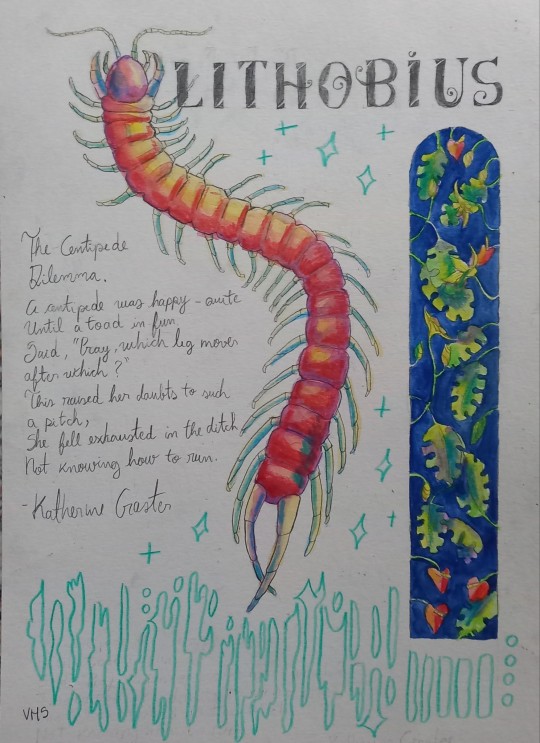 LITHOBIUS
The Centipede
Dilemma.
A centipede was happy - quite
Until a toad in fun
Said, "Pray, which leg moves
after which?"
This raised her doubts to such
a pitch,
She fell exhausted in the ditch
Not knowing how to run.
- Katherine Craster
VHS